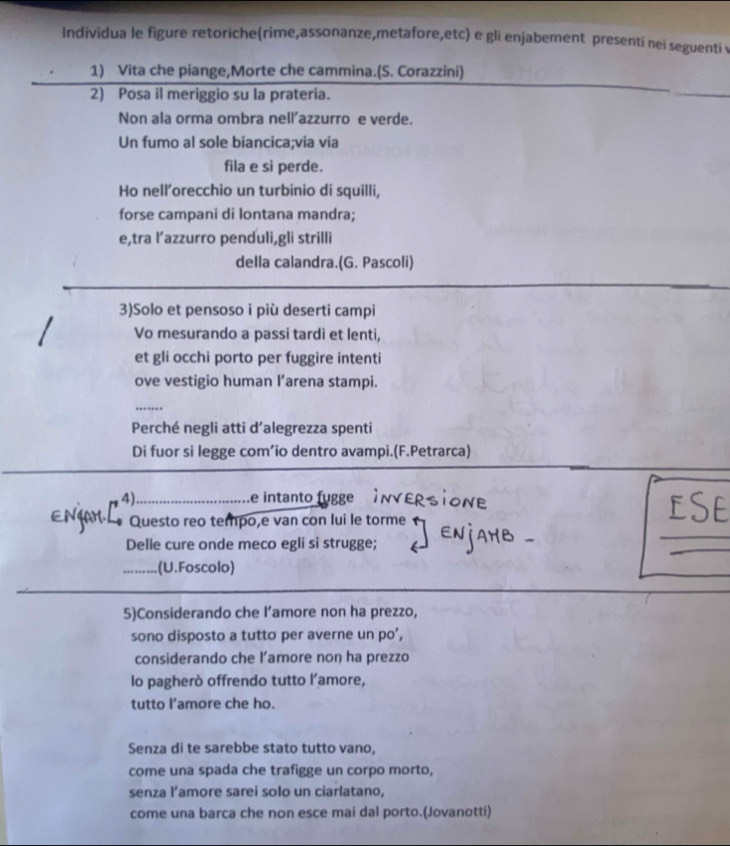 Individua le figure retoriche(rime,assonanze,metafore,etc) e gli enjabement presenti nei seguenti
1) Vita che piange,Morte che cammina.(S. Corazzini)
2) Posa il meriggio su la prateria.
Non ala orma ombra nell'azzurro e verde.
Un fumo al sole biancica;via via
fila e si perde.
Ho nell'orecchio un turbinio di squilli,
forse campani di lontana mandra;
e,tra l'azzurro penduli,gli strilli
della calandra.(G. Pascoli)
3)Solo et pensoso i più deserti campi
Vo mesurando a passi tardi et lenti,
et gli occhi porto per fuggire intenti
ove vestigio human l'arena stampi.
.......
Perché negli atti d'alegrezza spenti
Di fuor si legge com'io dentro avampi.(F.Petrarca)
4)............................e intanto fugge INVERSIONE
ENJAM. Questo reo tempo,e van con lui le torme
Delle cure onde meco egli si strugge; ENJAMB -
.........(U.Foscolo)
ESE
5)Considerando che l'amore non ha prezzo,
sono disposto a tutto per averne un po',
considerando che l'amore non ha prezzo
lo pagherò offrendo tutto l'amore,
tutto l'amore che ho.
Senza di te sarebbe stato tutto vano,
come una spada che trafigge un corpo morto,
senza l'amore sarei solo un ciarlatano,
come una barca che non esce mai dal porto.(Jovanotti)